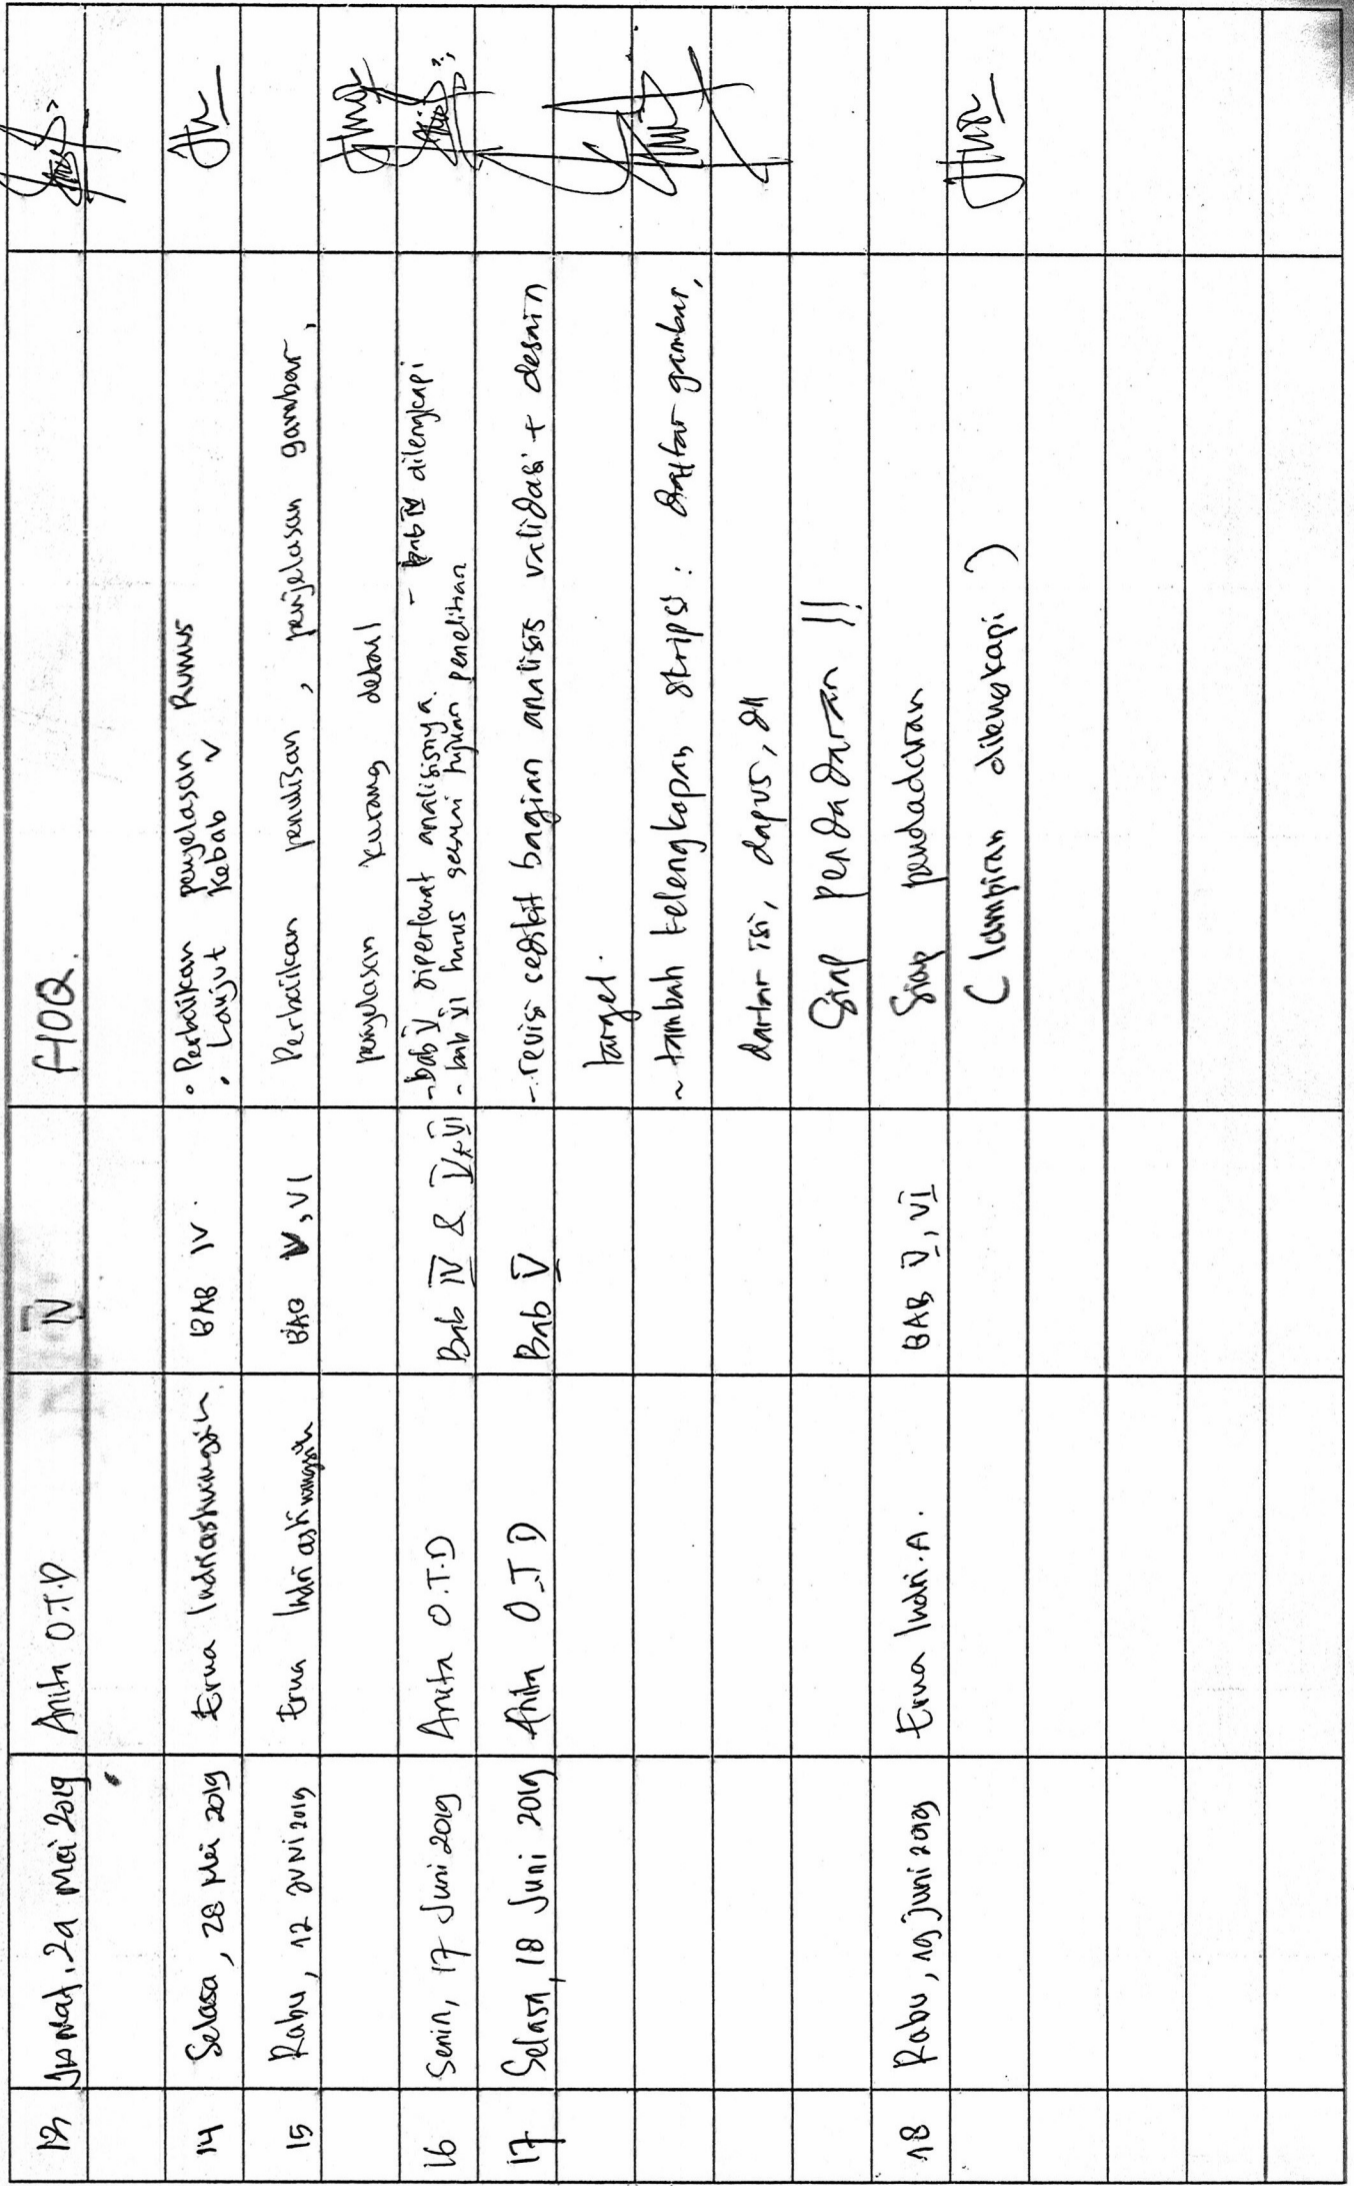 13 Jumat, 24 Mei 2019 Anita O.T.D IV HOQ.
14 Selasa, 28 Mei 2019 Erna Indriastiningsih BAB IV. • Perbaikan penjelasan Rumus
• Lanjut kebab V
15 Rabu, 12 JUNI 2019 Erna Indriastiningsih BAB V, VI Perbaikan penulisan, penjelasan gambar,
penjelasan kurang detail
16 Senin, 17 Juni 2019 Anita O.T.D Bab IV & V+VI - bab V diperkuat analisisnya. - bab IV dilengkapi
- bab VI harus sesuai tujuan penelitian
17 Selasa, 18 Juni 2019 Anita O.T D Bab V - revisi sedikit bagian analisis validasi + desain
target.
~ tambah kelengkapan skripsi : daftar gambar,
daftar isi, dapus, dll
Siap pendadaran !!
18 Rabu, 19 juni 2019 Erna Indri.A. BAB V, VI Siap pendadaran
( lampiran dilengkapi )